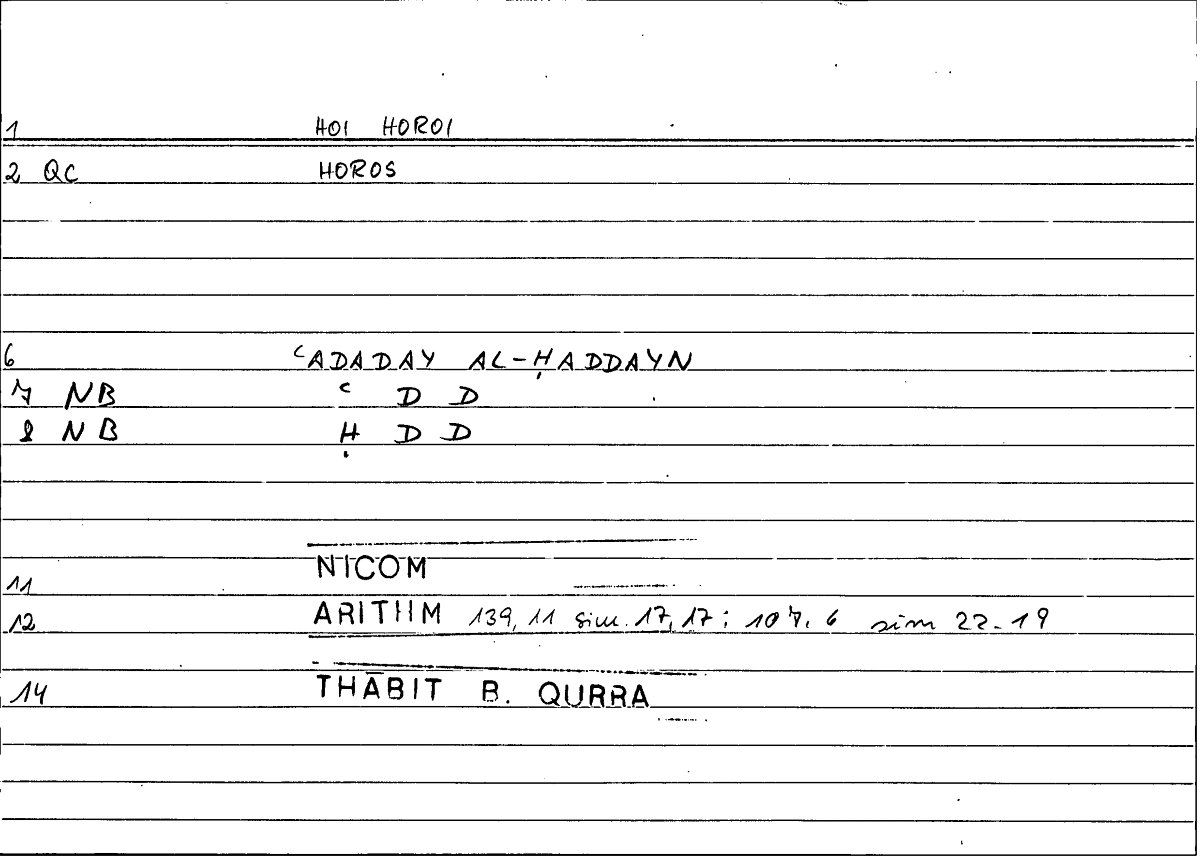 1 HOI HOROI
2 QC HOROS
6 ʿADADAY AL-ḤADDAYN
7 NB ʿ D D
8 NB Ḥ D D
11 NICOM
12 ARITHM 139, 11 sim. 17, 17 ; 107. 6 sim 22-19
14 THĀBIT B. QURRA